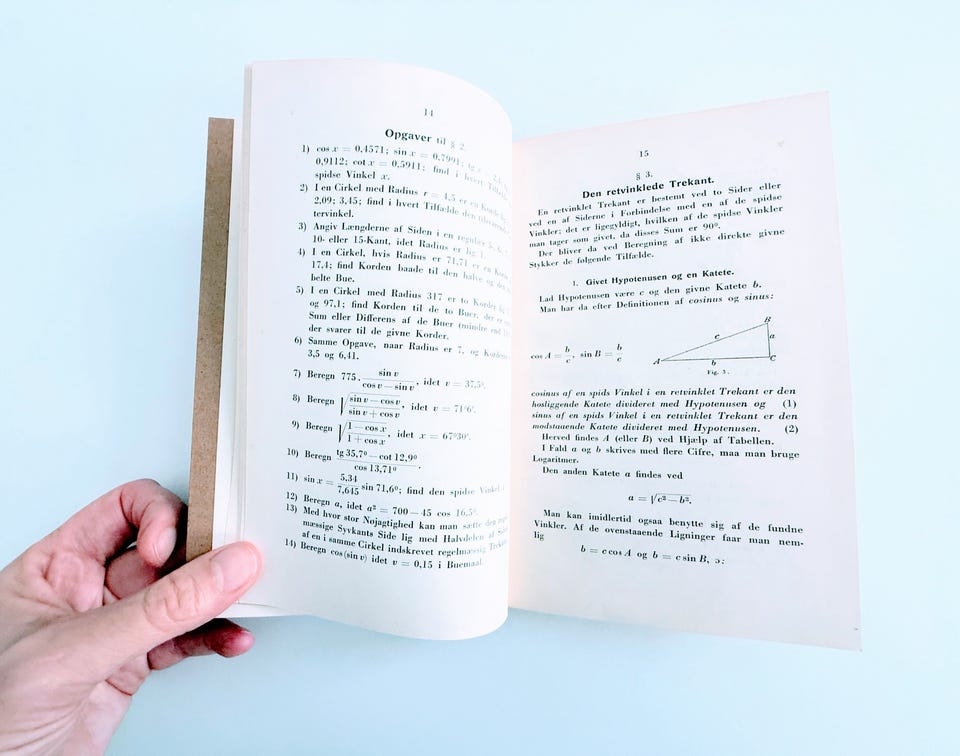 14
Opgaver til § 2.
1) cos x = 0,4571; sin x = 0,7991; tg x
0,9112; cot x = 0,5911; find i hvert
spidse Vinkel x.
2) I en Cirkel med Radius r = 4,5 er en Korde
2,09; 3,45; find i hvert Tilfælde den tilsvarende
tervinkel.
3) Angiv Længderne af Siden i en regulær
10- eller 15-Kant, idet Radius er
4) I en Cirkel, hvis Radius er 71,71 er en Korde
17,4; find Korden baade til den halve og den
belte Bue.
5) I en Cirkel med Radius 317 er to Korder
og 97,1; find Korden til de to Buer, der er
Sum eller Differens af de Buer (mindre end
der svarer til de givne Korder.
6) Samme Opgave, naar Radius er 7, og Korderne
3,5 og 6,41.
7) Beregn 775 · sin v / (cos v — sin v), idet v = 37,5º.
8) Beregn √((sin v — cos v) / (sin v + cos v)), idet v = 71º6'.
9) Beregn √((1 — cos x) / (1 + cos x)), idet x = 67º30'.
10) Beregn (tg 35,7º — cot 12,9º) / cos 13,71º.
11) sin x = 5,34 / 7,645 sin 71,6º; find den spidse Vinkel
12) Beregn a, idet a² = 700 — 45 cos 16,5º.
13) Med hvor stor Nøjagtighed kan man sætte den
mæssige Syvkants Side lig med Halvdelen af
af en i samme Cirkel indskrevet regelmæssig
14) Beregn cos (sin v) idet v = 0,15 i Buemaal.
15
§ 3.
Den retvinklede Trekant.
En retvinklet Trekant er bestemt ved to Sider eller
ved en af Siderne i Forbindelse med en af de spidse
Vinkler; det er ligegyldigt, hvilken af de spidse Vinkler
man tager som givet, da disses Sum er 90º.
Der bliver da ved Beregning af ikke direkte givne
Stykker de følgende Tilfælde.
1. Givet Hypotenusen og en Katete.
Lad Hypotenusen være c og den givne Katete b.
Man har da efter Definitionen af cosinus og sinus:
cos A = b/c, sin B = b/c
A B C a b c
Fig. 3.
cosinus af en spids Vinkel i en retvinklet Trekant er den
hosliggende Katete divideret med Hypotenusen og (1)
sinus af en spids Vinkel i en retvinklet Trekant er den
modstaaende Katete divideret med Hypotenusen. (2)
Herved findes A (eller B) ved Hjælp af Tabellen.
I Fald a og b skrives med flere Cifre, maa man bruge
Logaritmer.
Den anden Katete a findes ved
a = √(c² — b²).
Man kan imidlertid ogsaa benytte sig af de fundne
Vinkler. Af de ovenstaaende Ligninger faar man nem-
lig
b = c cos A og b = c sin B, ɔ: